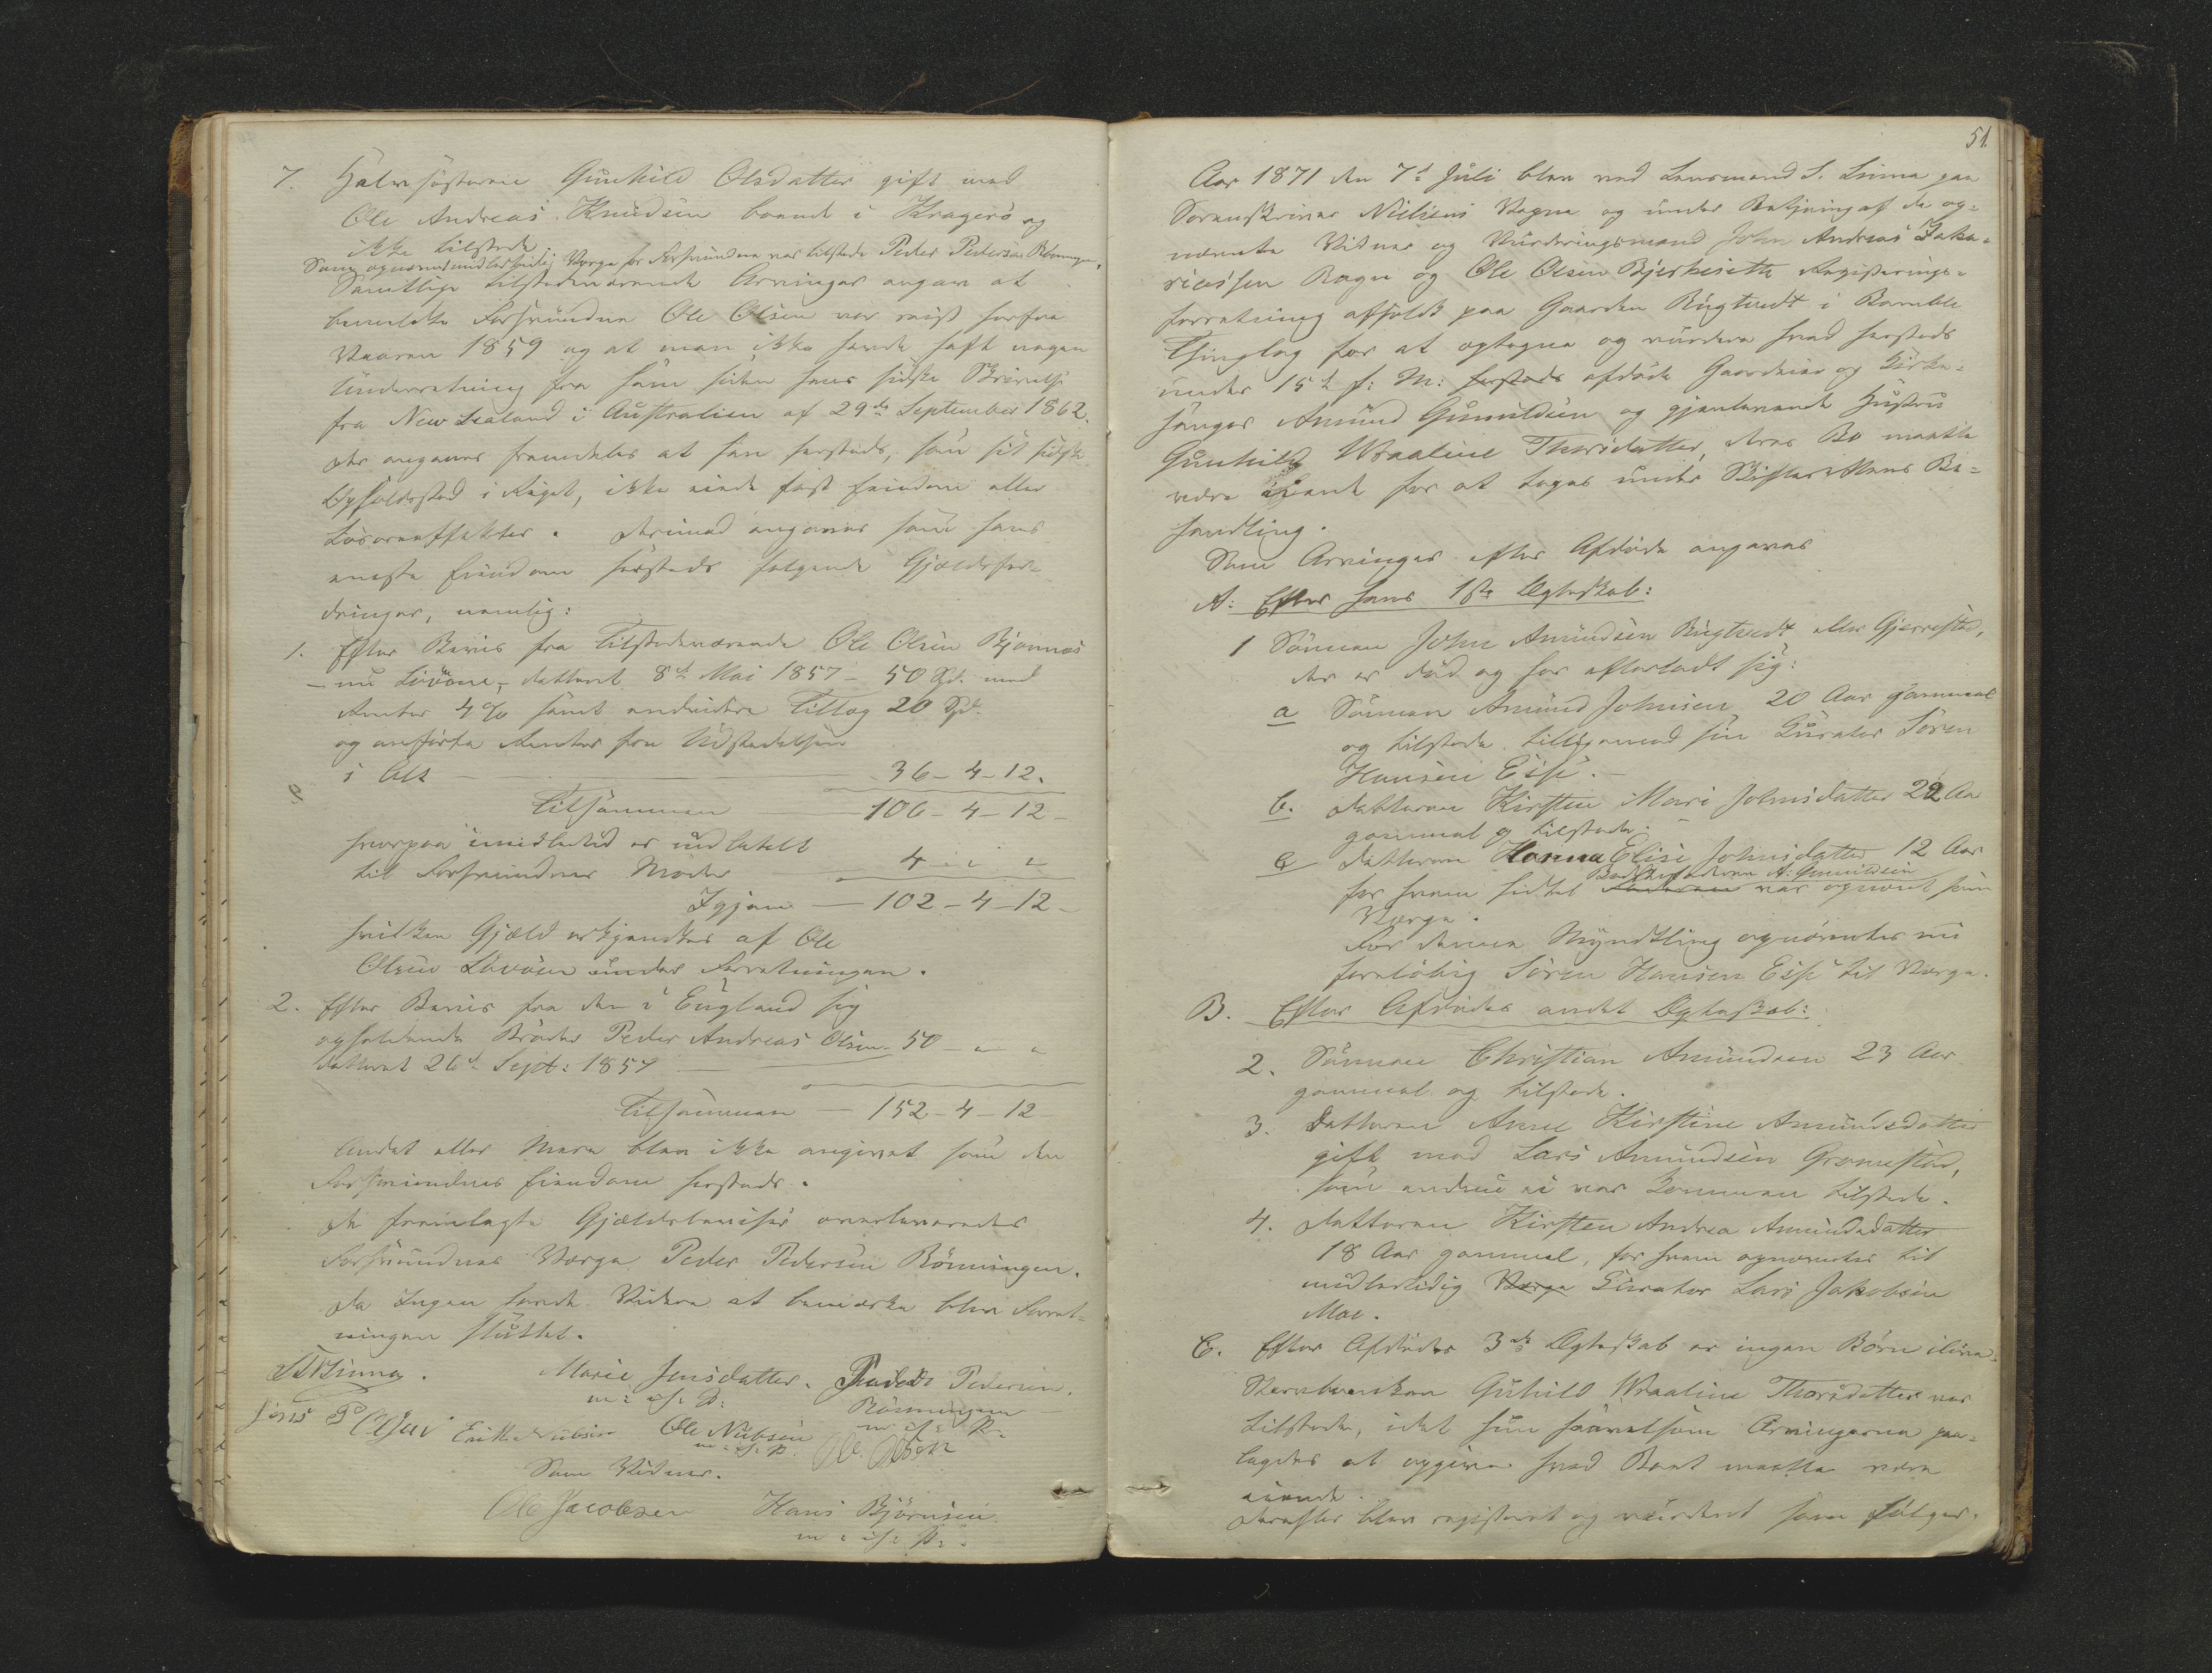 7. Halvsøsteren Gunhild Olsdatter gift med
Ole Andreas Knudsen boende i Kragerø og
ikke tilstede
Som opnævnt midlertidig Værge for Forsvundne var tilstede Peder Pedersen Rönningen.
Samtlige tilstedeværende Arvinger angav at
bemeldte Forsvundne Ole Olsen var reist herfra
Vaaren 1859 og at man ikke havde haft nogen
Underretning fra ham siden hans sidste Skrivelse
fra New Sealand i Australien af 29de September 1862.
Der angaves fremdeles at han hersteds, som sit sidste
Opholdssted i Riget, ikke eiede fast Eiendom eller
Løsøreeffekter. Derimod angaves som hans
eneste Eiendom hersteds følgende Gjældsfor-
dringer, nemlig:
1. Efter Bevis fra tilstedeværende Ole Olsen Bjønnæs
– nu Lövöen, datteret 8de Mai 1857 – 50 Spd. med
Renter 4 % samt endvidere Tillæg 20 Spd.
og anførte Renter fra Udstedelsen
i Alt — 36 – 4 – 12.
Tilsammen — 106 – 4 – 12 –
hvorpaa imidlertid er indbetalt
til Forsvundnes Moder 4 " "
Igjen — 102 – 4 – 12 –
hvilken Gjæld erkjendtes af Ole
Olsen Lövöen under Forretningen.
2. Efter Bevis fra den i England sig
opholdende Broder Peder Andreas Olsen – 50 – " "
datteret 26de Sept: 1857
Tilsammen — 152 – 4 – 12
Andet eller Mere blev ikke angivet som den
Forsvundnes Eiendom hersteds.
De fremlagte Gjældsbeviser overleveredes
Forsvundnes Værge Peder Pedersen Rönningen.
Da Ingen havde Videre at bemærke blev Forret-
ningen sluttet.
Marie Jensdatter. Peder Pedersen.
m: i: P: Rönningen
Jens P Olsen Ole Nilsen m: i: P:
m: i: P. Ole Olsen
Som Vidner.
Ole Jacobsen Hans Björnsen
m: i: P:
51.
Aar 1871 den 7de Juli blev ved Lensmand S. Linna paa
Sorenskriver Nielsens Vegne og under Betjening af de op-
nævnte Vidner og Vurderingsmænd John Andreas Zaka-
riassen Rogn og Ole Olsen Bjerkesætte Registerings-
forretning afholdt paa Gaarden Rugtvedt i Bamble
Thinglag for at optegne og vurdere hvad hersteds
under 15de f: M: hersteds afdøde Gaardeier og Kirke-
sanger Amund Gunuldsen og gjenlevende Hustru
Gunhild Wraaline Thorsdatter, deres Bo maatte
være eiende for at tages under Skifterettens Be-
handling.
Som Arvinger efter Afdøde angaves
A: Efter hans 1ste Ægteskab:
1 Sønnen John Amundsen Rugtvedt eller Gjerrestad,
der er død og har efterladt sig:
a Sønnen Amund Johnsen 20 Aar gammel
og tilstede tilligemed sin Curator Søren
Hansen Eik.
b. Datteren Kirsten Marie Johnsdatter 22 Aar
gammel og tilstede.
c Datteren Hanna Elise Johnsdatter 12 Aar
Bedstefaderen A: Gunuldsen
for hvem sidst Faderen var opnævnt som
Værge.
For denne Myndtling opnævntes nu
foreløbig Sören Hansen Eik til Værge.
B. Efter Afdødes andet Ægteskab:
2. Sønnen Christian Amundsen 23 Aar
gammel og tilstede.
3. Datteren Anne Kirstine Amundsdatter
gift med Lars Amundsen Gromstad,
som endnu ei var kommen tilstede.
4. Datteren Kirsten Andrea Amundsdatter
18 Aar gammel, for hvem opnævntes til
midlertidig Værge Curator Lars Jakobsen
Moe.
C. Efter Afdødes 3die Ægteskab er ingen Børn ilive.
Stervboenken Guhild Wraaline Thorsdatter var
tilstede, idet hun saavelsom Arvingerne paa-
lagdes at opgive hvad Boet maatte være
eiende.
Derefter blev registeret og vurderet som følger.